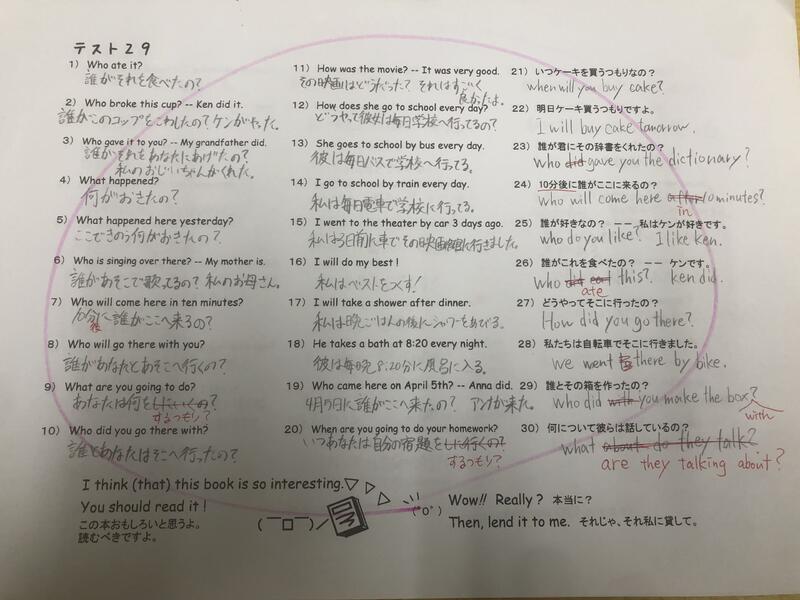 テスト２９
1) Who ate it?
誰がそれを食べたの？
2) Who broke this cup? -- Ken did it.
誰がこのコップをこわしたの？ケンがやった。
3) Who gave it to you? -- My grandfather did.
誰がそれをあなたにあげたの？
私のおじいちゃんがくれた。
4) What happened?
何がおきたの？
5) What happened here yesterday?
ここできのう何がおきたの？
6) Who is singing over there? -- My mother is.
誰があそこで歌ってるの？私のお母さん。
7) Who will come here in ten minutes?
10分後に誰がここへ来るの？
8) Who will go there with you?
誰があなたとあそこへ行くの？
9) What are you going to do?
あなたは何をしにいくの？
するつもり？
10) Who did you go there with?
誰とあなたはそこへ行ったの？
11) How was the movie? -- It was very good.
その映画はどうだった？それはすごく
良かったよ。
12) How does she go to school every day?
どうやって彼女は毎日学校へ行ってるの？
13) She goes to school by bus every day.
彼は毎日バスで学校へ行ってる。
14) I go to school by train every day.
私は毎日電車で学校に行ってる。
15) I went to the theater by car 3 days ago.
私は3日前に車でその映画館に行きました。
16) I will do my best !
私はベストをつくす！
17) I will take a shower after dinner.
私は晩ごはんの後にシャワーをあびる。
18) He takes a bath at 8:20 every night.
彼は毎晩8:20分に風呂に入る。
19) Who came here on April 5th? -- Anna did.
4月5日に誰がここへ来たの？アンナが来た。
20) When are you going to do your homework?
いつあなたは自分の宿題をしに行くの？
するつもり？
21) いつケーキを買うつもりなの？
when will you buy cake?
22) 明日ケーキ買うつもりですよ。
I will buy cake tomorrow.
23) 誰が君にその辞書をくれたの？
who did gave you the dictionary?
24) 10分後に誰がここに来るの？
who will come here after 10 minutes?
in
25) 誰が好きなの？ ーー 私はケンが好きです。
who do you like? I like ken.
26) 誰がこれを食べたの？ ーー ケンです。
who did eat this? ken did.
ate
27) どうやってそこに行ったの？
How did you go there?
28) 私たちは自転車でそこに行きました。
we went to there by bike.
29) 誰とその箱を作ったの？
who did with you make the box?
with
30) 何について彼らは話しているの？
what about do they talk?
are they talking about?
I think (that) this book is so interesting.
You should read it !
この本おもしろいと思うよ。
読むべきですよ。
Wow!! Really? 本当に？
Then, lend it to me. それじゃ、それ私に貸して。